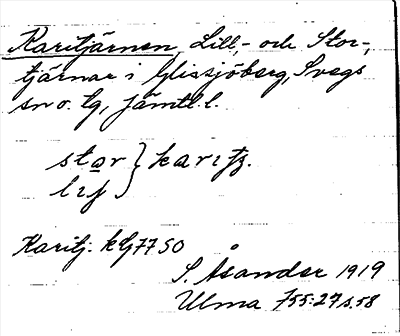 Karitjärnen, Lill,- och Stor-,
tjärnar i Glissjöberg, Svegs
sn o. tg, Jämtl. l.
stor } karitz.
lif
Karitj: k G7750
S. Åsander 1919
Ulma 755:27 s. 58